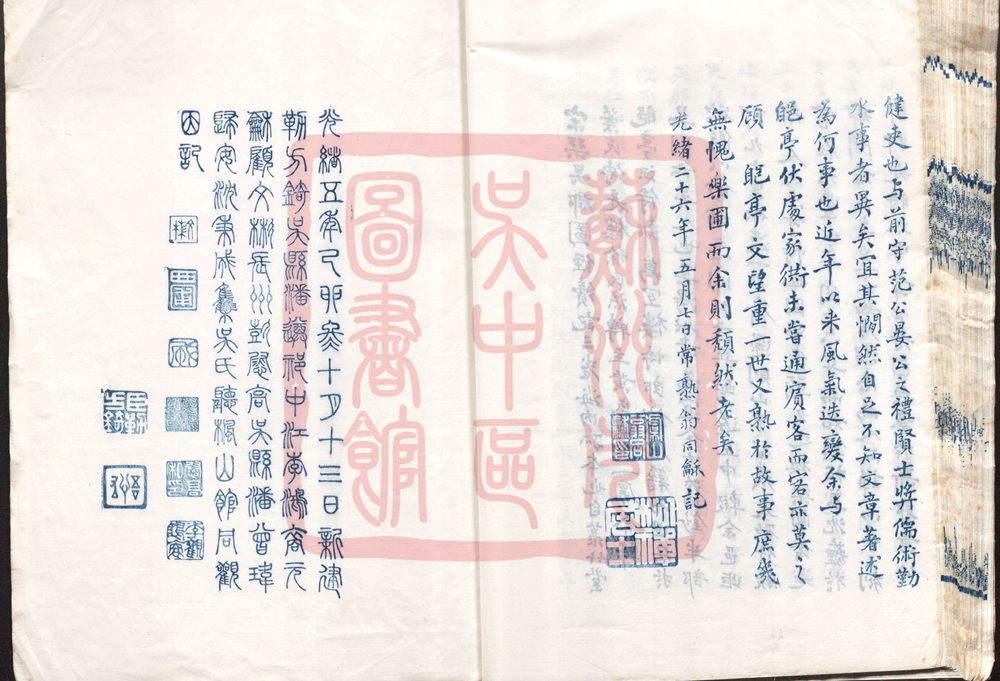 健吏也与前守范公晏公之禮賢士将儒術勤
水事者異矣宜其憪然自足不知文章著述
為何事也近年以来風氣迭變余与
皅亭伏處家衖未嘗通賓客而客亦莫之
顧 皅亭文望重一世又熟於故事庶幾
無愧樂圃而余則頹然老矣
光緒二十六年五月七日常熟翁同龢記
松禪居士
光緒五年己卯冬十月十三日新建
勒方錡吳縣潘遵祁中江李鴻裔元
龢顧文彬長州彭慰高吳縣潘曾瑋
歸安沈秉成集吳氏聽楓山館同觀
因記
蘇州市
吳中區
圖書館